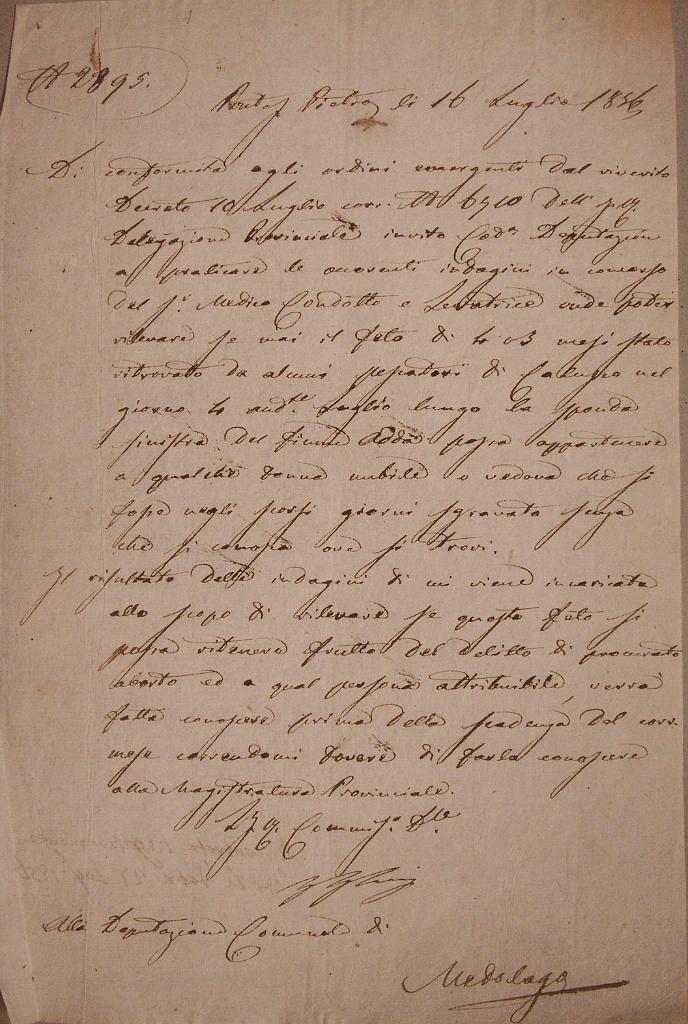 N 2895.
Ponte S. Pietro li 16 Luglio 1856
Di conformità agli ordini emergenti dal riverito
Decreto 10 Luglio corr. N 6710 dell' I. R.
Delegazione Provinciale invito Cod.ª Deputazione
a praticare le occorenti indagini in concorso
del S.r Medico Condotto e Levatrice onde poter
rilevare se mai il feto di 4 o 3 mesi stato
ritrovato da alcuni pescatori di Calusco nel
giorno 4 and.te Luglio lungo la sponda
sinistra del fiume Adda possa appartenere
a qualche donna nubile o vedova che si
fosse negli scorsi giorni sgravata senza
che si conosca ove si trovi.
Il risultato delle indagini di cui viene incaricata
allo scopo di rilevare se questo feto si
possa ritenere frutto del delitto di procurato
aborto ed a qual persona attribuibile, verrà
fatta conoscere prima della scadenza del corr.
mese correndomi dovere di farla conoscere
alla Magistratura Provinciale.
I. R. Commiss.o D.le
Alla Deputazione Comunale di
Medolago